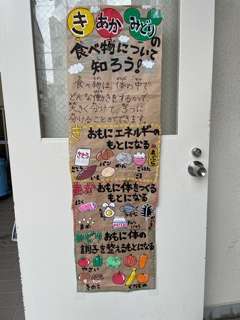 き あか みどり の
食べ物について
知ろう!
食べ物は、体の中で
どんな働きをするかで
大きく分けて、3つに
分けることができます。
き おもにエネルギーの
もとになる
さとう
パン
あか おもに体をつくる
もとになる
みどり おもに体の
調子を整えるもとになる
やさい
きのこ
くだもの